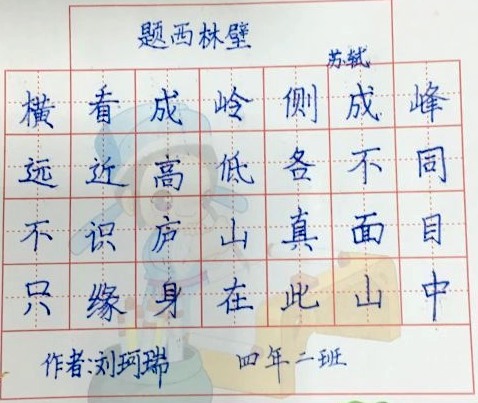 题西林壁
苏轼
横看成岭侧成峰
远近高低各不同
不识庐山真面目
只缘身在此山中
作者:刘珂瑞 四年二班